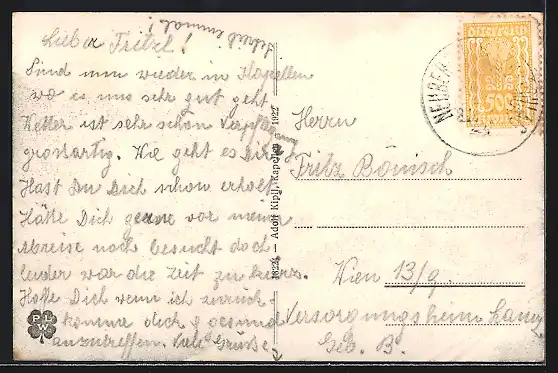 Schreib einmal!
Lieber Fritzl!
Sind nun wieder in Kapellen
wo es uns sehr gut geht
Wetter ist sehr schön Verpfle
großartig. Wie geht es Dir?
Hast Du Dich schon erholt
Hätte Dich gerne vor meiner
Abreise noch besucht doch
leider war die Zeit zu kurz.
Hoffe Dich wenn ich zurück-
komme dich gesund
anzutreffen. Viele Grüße
PLW
1822 — Adolf Kipli, Kapellen 1922
Herrn
Fritz Bönisch
Wien 13/9.
Versorgungsheim Lainz
Geb. B.
500
NEUBER